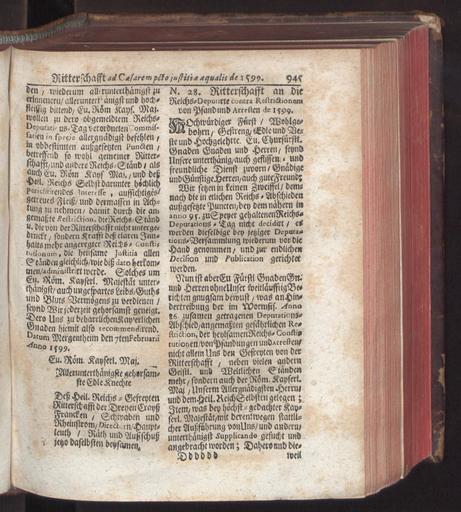 Ritterschafft ad Cæsarem pcto justitiæ æqualis de 1599. 945
den / wiederum all-unterthänigst zu
erinneren / allerunterthänigst und hoch-
fleißig bittend / Eu. Röm Kays. Maj.
wollen zu dero obgemeldtem Reichs-
Deputations-Tag verordneten Commis-
sarien in specie allergnädigst befehlen /
in obbestimten außgesetzten Puncten
betreffend so wohl gemeiner Ritter-
schafft, und andere Reichs-Ständ / als
auch Eu. Röm Kays Maj. und deß
Heil. Reichs Selbst darunter höchlich
Interesse, auffsichtiges /
getreues Fleiß / und dermassen in Ach-
tung zu nehmen / damit durch die an-
gemaßte Restriction, die Reichs-Ständ
u. die von der Ritterschafft nicht unterge-
druckt / sondern Krafft deß claren Inn-
halts mehr angeregter Reichs-Consti-
tutionen, die heilsame Justitia allen
Ständen gleichlich / wie biß dato herkom-
men / administrirt werde. Solches um
Eu. Röm. Kayserl. Majestät unter-
thänigst / auch ungespartes Leibs / Guths
und Bluts Vermögens zu verdienen /
seynd Wir jederzeit gehorsamst geneigt.
Dero Uns zu beharrlichen Kayserlichen
Gnaden hiemit also recommendirend.
Datum Mergentheim den 7ten Februarii
Anno 1599.
Eu. Röm. Kayserl. Maj.
Allerunterthänigste gehorsam-
ste Edle Knechte
Deß Heil. Reichs-Gefreyten
Ritterschafft der Dreyen Crayß
Francken / Schwaben und
Rheinstrom / Directorn, Haupt-
leuth / Räth und Außschuß
jetzo daselbsten beysamen.
N. 28. Ritterschafft an die
Reichs-Deputirte contra Restrictionem
von Pfandung und Arresten de 1599.
Hochwürdiger Fürst / Wohlge-
bohrn / Gestreng / Edle und Ve-
ste und Hochgelehrte. Eu. Churfürstl.
Gnaden Gnaden und Herren / seynd
Unsere unterthänig / auch geflissen- und
freundliche Dienst zuvorn / Gnädige
und Günstige Herren / auch gute Freund;
Wir setzen in keinen Zweiffel / dem-
nach die in etlichen Reichs-Abschieden
außgesetzte Puncten / bey dem nähern in
anno 95. zu Speyer gehaltenen Reichs-
Deputations-Tag nicht decidirt / es
werden dieselbige bey jetziger Deputa-
tions-Versammlung wiederum vor die
Hand genommen / und zur endlichen
Decision und Publication gerichtet
werden.
Nun ist aber Eu Fürstl Gnaden Gn.
und Herren ohne Unser weitläuffig Be-
richten gnugsam bewust / was an Hin-
dertreibung der im Wormbs. Anno
86 zusamen getragenen Deputations-
Abschied / angemaßten gefährlichen Re-
striction, der heylsamen Reichs-Consti-
tutionen / von Pfändungen und Arresten /
nicht allein Uns den Gefreyten von der
Ritterschafft / neben vielen andern
Geistl. und Weltlichen Ständen
mehr / sondern auch der Röm. Kayserl.
Maj / Unserm Allergnädigsten Herrn
und dem Heil. Reich Selbsten gelegen;
Item, was bey höchst-gedachter Kay-
serl. Majestät / mit derentwegen stattli-
cher Außführung von Uns / und andern
unterthänigst Supplicando gesucht und
angebracht worden; Daher o und die-
Ddddd weil